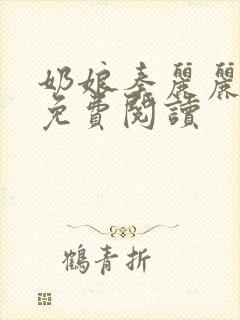 奶娘秦麗麗
免費閱讀
鶴青折